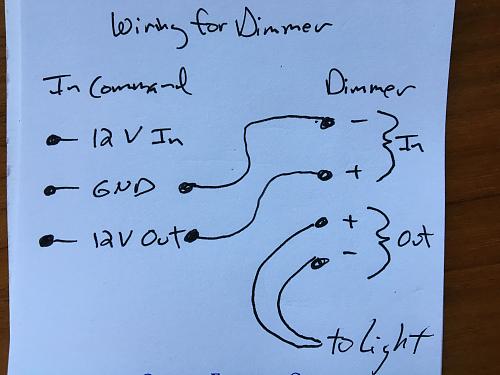 Wiring for Dimmer
In Command Dimmer
12 V In
GND
12V Out
-
+
In
+
-
Out
to light